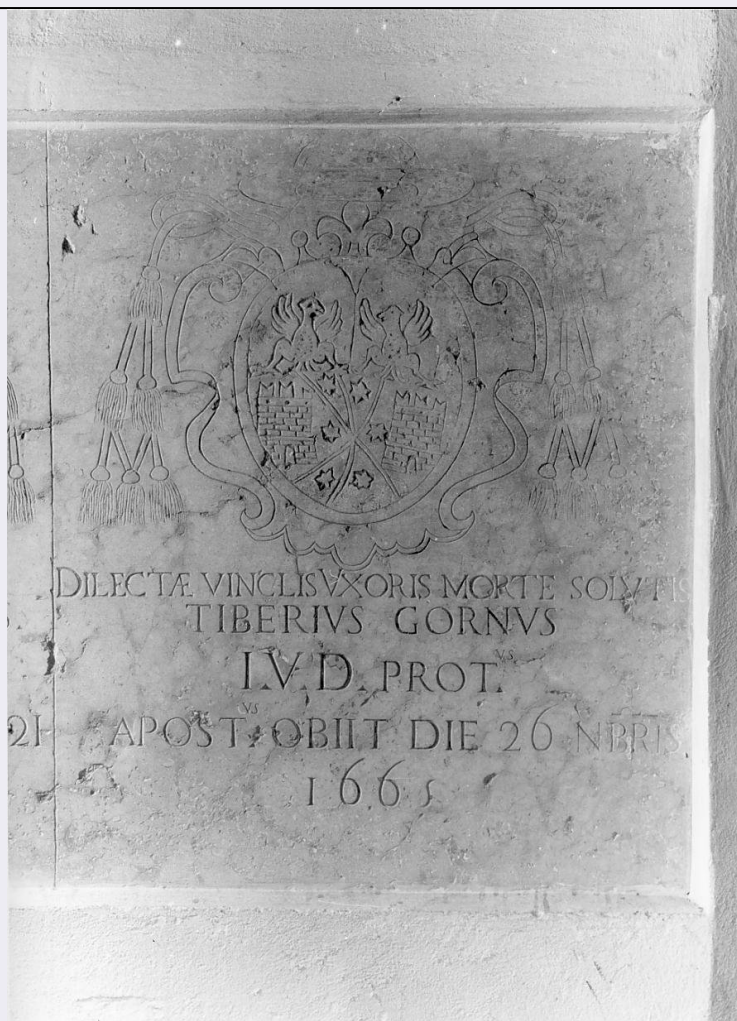 DILECTÆ VINCLIS VXORIS MORTE SOLVTIS
TIBERIVS GORNVS
I.V.D. PROT.VS
21
APOST.VS OBIIT DIE 26 NBRIS
1665